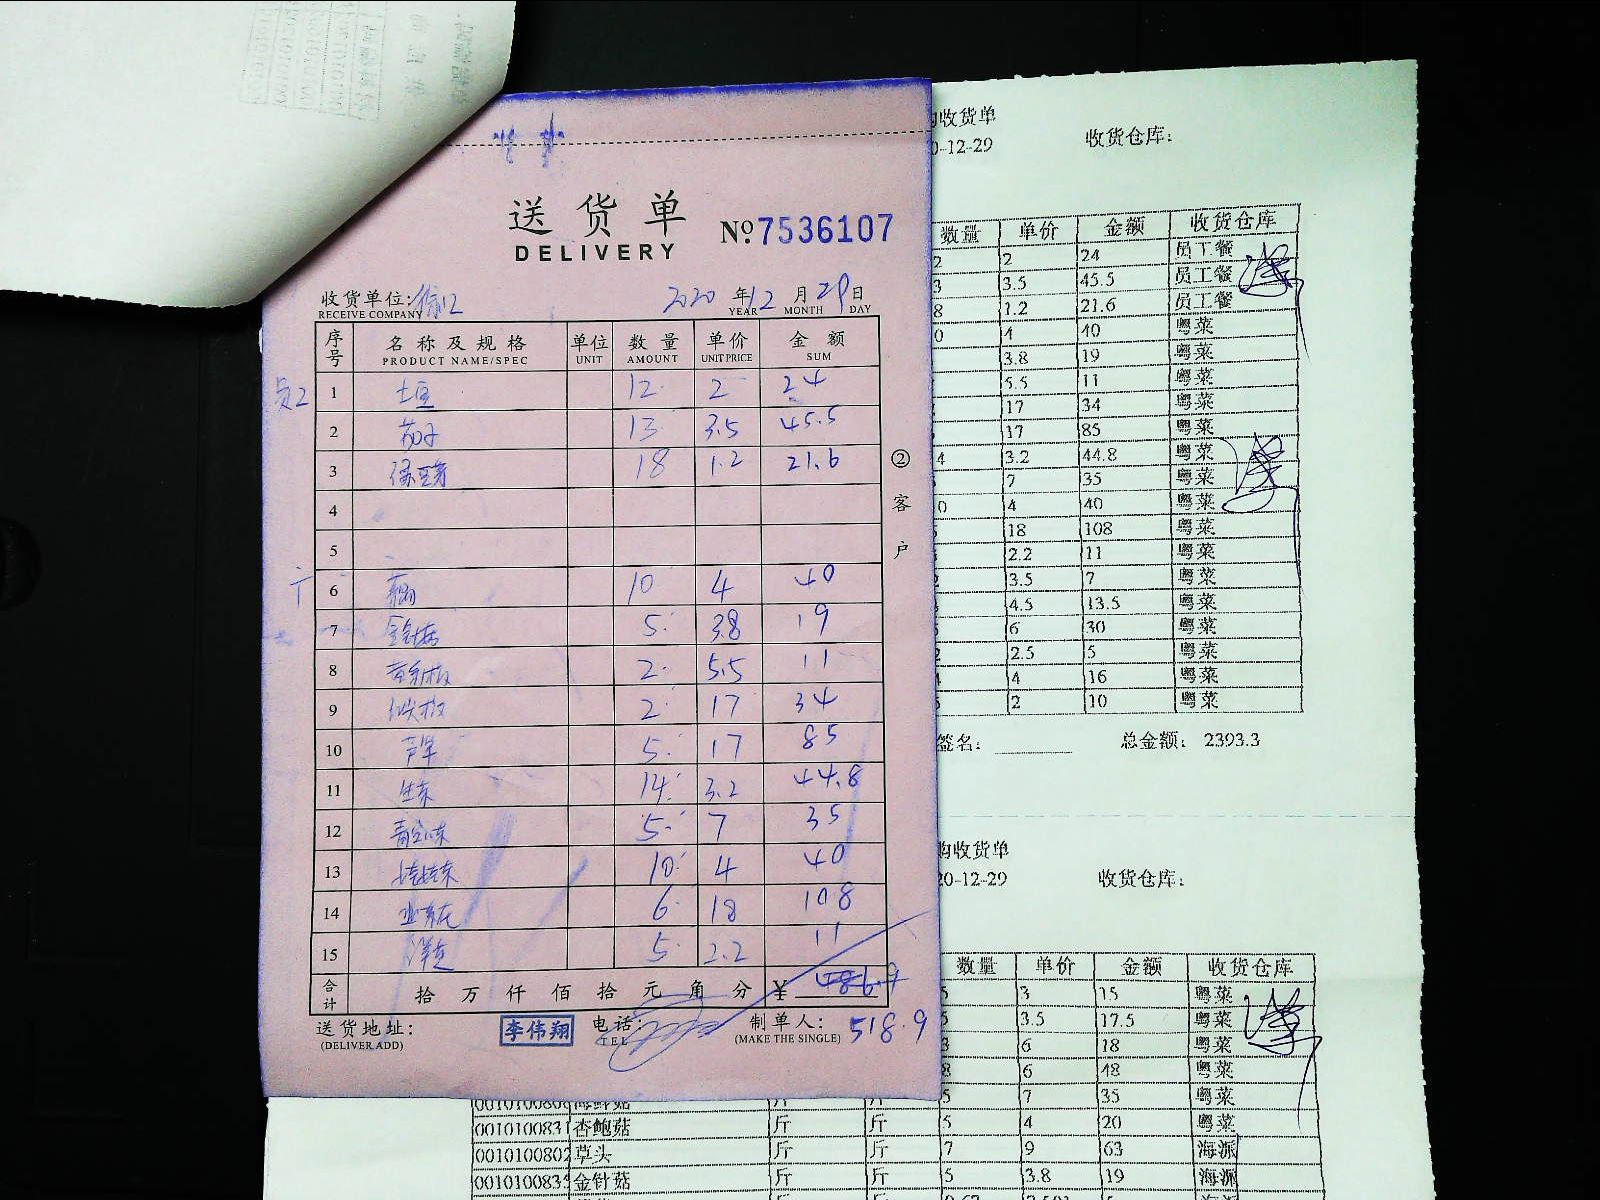 送货单
DELIVERY
No.7536107
收货单位:徐汇 2020 年 12 月 29 日
RECEIVE COMPANY YEAR MONTH DAY
序号 名称及规格 单位 数量 单价 金额
PRODUCT NAME/SPEC UNIT AMOUNT UNIT PRICE SUM
1 土豆 12 2 24
2 茄子 13 3.5 45.5
3 绿豆芽 18 1.2 21.6
4
5
6 10 4 40
7 金针菇 5 3.8 19
8 2 5.5 11
9 2 17 34
10 芦笋 5 17 85
11 生菜 14 3.2 44.8
12 5 7 35
13 娃娃菜 10 4 40
14 6 18 108
15 洋葱 5 2.2 11
合计 拾 万 仟 佰 拾 元 角 分 ¥ 486.9
送货地址: 李伟翔 电话: 制单人: 518.9
(DELIVER ADD) TEL (MAKE THE SINGLE)
②客户
收货单
0-12-29 收货仓库:
数量 单价 金额 收货仓库
2 2 24 员工餐
3 3.5 45.5 员工餐
8 1.2 21.6 员工餐
0 4 40 粤菜
3.8 19 粤菜
5.5 11 粤菜
17 34 粤菜
17 85 粤菜
4 3.2 44.8 粤菜
7 35 粤菜
0 4 40 粤菜
18 108 粤菜
2.2 11 粤菜
3.5 7 粤菜
4.5 13.5 粤菜
6 30 粤菜
2.5 5 粤菜
4 16 粤菜
2 10 粤菜
签名: 总金额: 2393.3
购收货单
20-12-29 收货仓库:
数量 单价 金额 收货仓库
5 3 15 粤菜
5 3.5 17.5 粤菜
3 6 18 粤菜
8 6 48 粤菜
5 7 35 粤菜
0010100831 杏鲍菇 斤 斤 5 4 20 粤菜
0010100802 草头 斤 斤 7 9 63 海派
001010083 金针菇 斤 斤 5 3.8 19 海派